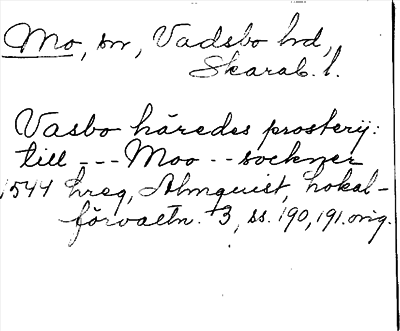 Mo, sn, Vadsbo hd,
Skarab. l.
Vasbo häredes prosterij:
till --- Moo -- sockner
1544 hreg, Almquist, Lokal-
förvaltn. 3, ss. 190, 191. orig.